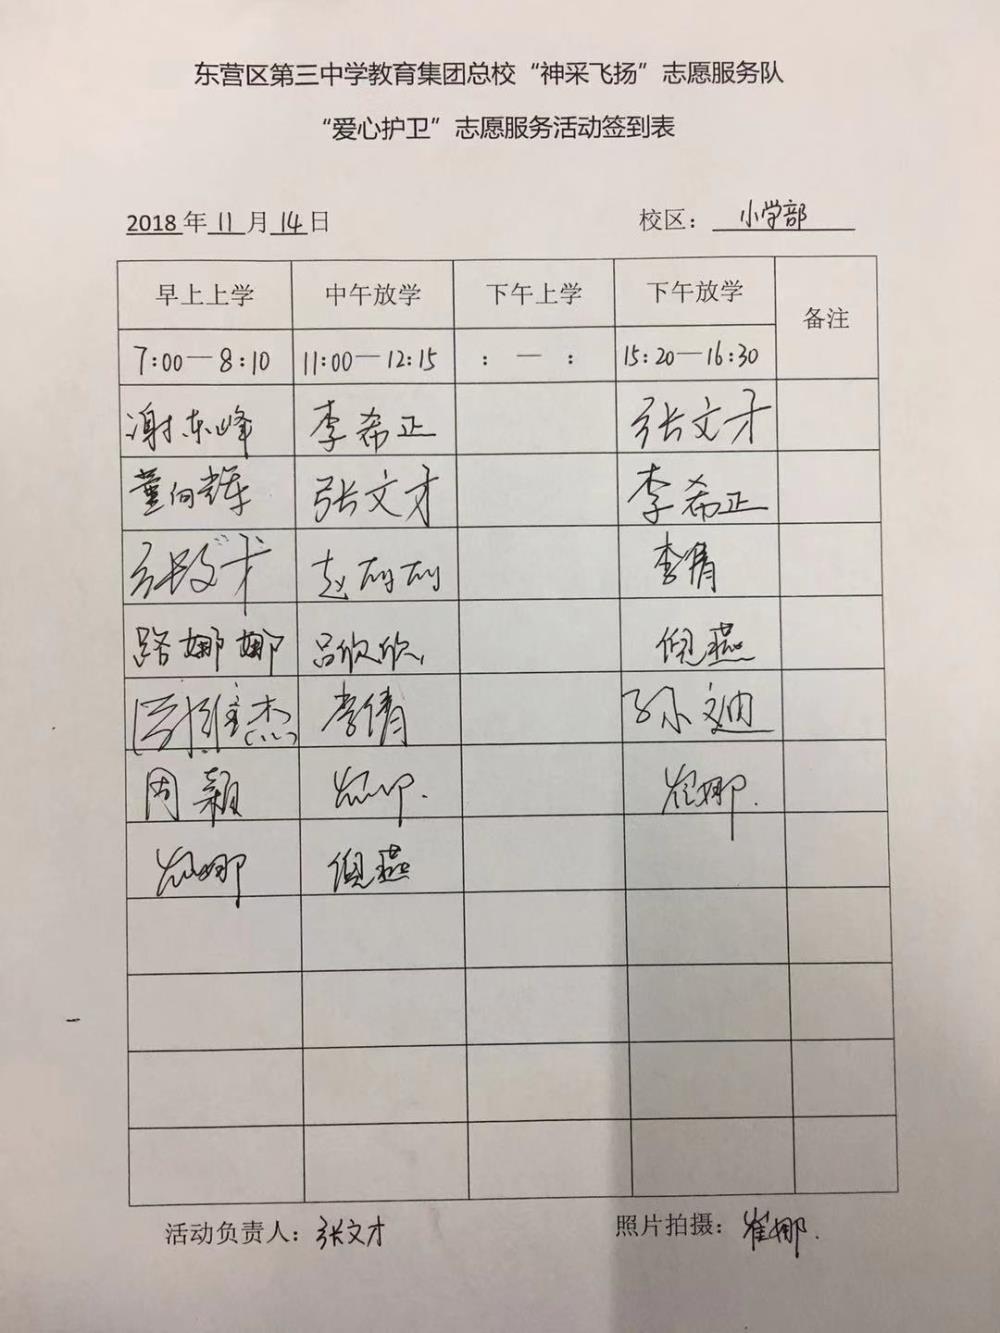 东营区第三中学教育集团总校“神采飞扬”志愿服务队
“爱心护卫”志愿服务活动签到表
2018年11月14日 校区：小学部
早上上学 中午放学 下午上学 下午放学 备注
7:00—8:10 11:00—12:15 : — : 15:20—16:30
谢东峰 李希正 张文才
董向辉 张文才 李希正
赵丽丽 李倩
路娜娜 吕欣欣 倪燕
李倩 孙文迪
周颖 崔娜. 崔娜.
崔娜 倪燕
活动负责人：张文才 照片拍摄：崔娜.